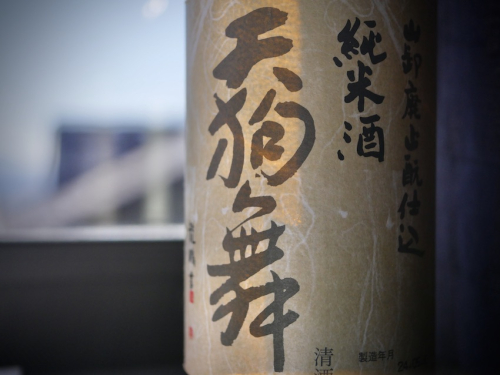 山卸廃止酛仕込
純米酒
天狗舞
清酒
製造年月